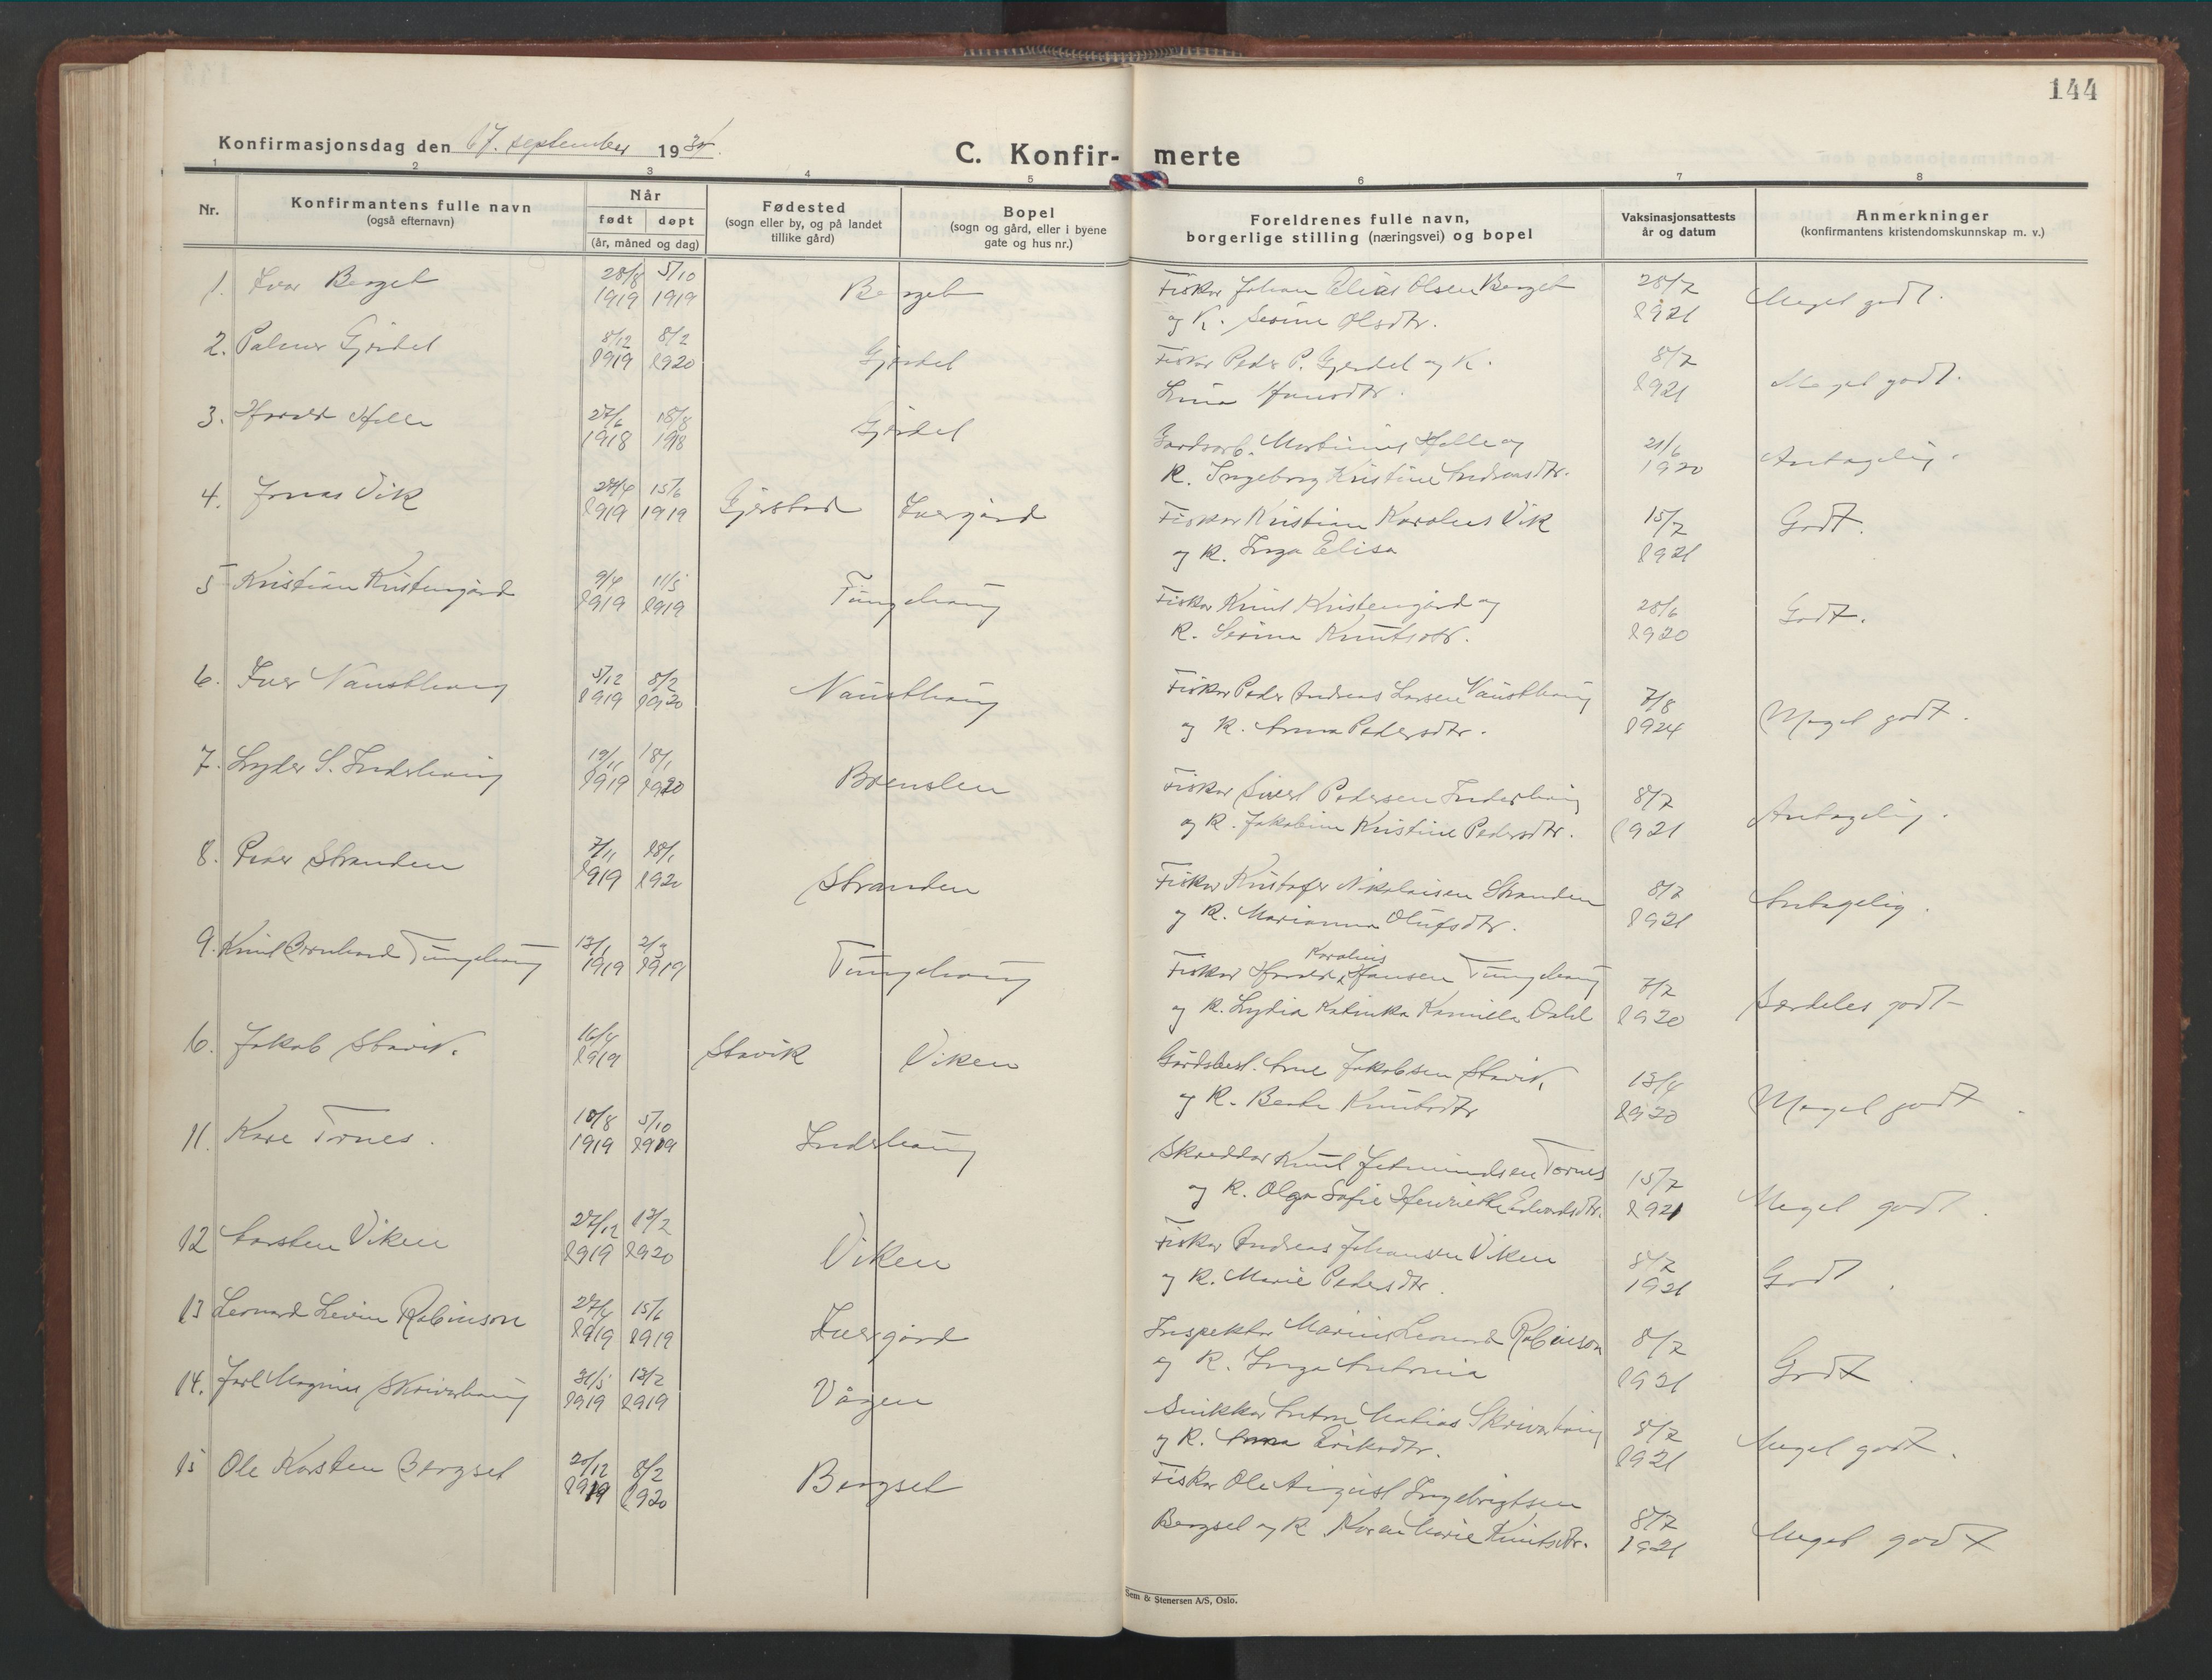 144
Konfirmasjonsdag den 17. september 1934.
C. Konfir- merte
1 2 3 4 5 6 7 8
Nr.
Konfirmantens fulle navn
(også efternavn)
Når
født døpt
(år, måned og dag)
Fødested
(sogn eller by, og på landet
tillike gård)
Bopel
(sogn og gård, eller i byene
gate og hus nr.)
Foreldrenes fulle navn,
borgerlige stilling (næringsvei) og bopel
Vaksinasjonsattests
år og datum
Anmerkninger
(konfirmantens kristendomskunnskap m. v.)
1. Ivar Berget 28/8 5/10 Berget Fisker Johan Elias Olsen Berget 28/7 Meget godt.
1919 1919 og K. Serine Olsdtr. 1921
2. Palmer Gjerdet 8/12 8/2 Gjerdet Fisker Peder P. Gjerdet og K. 8/7 Meget godt.
1919 1920 Lina Hansdtr. 1921
3. Harald Holle 27/6 18/8 Gjerdet Gardsarb. Martinus Holle og 21/6 Antagelig.
1918 1918 K. Ingeborg Kristine Andreasdtr. 1920
4. Jonas Vik 27/4 15/6 Gjerstad Ivergård Fisker Kristian Karolus Vik 15/7 Godt.
1919 1919 og K. Inga Elisa 1921
5 Kristian Kristengård 9/4 11/5 Tunghaug Fisker Knut Kristengård og 28/6 Godt.
1919 1919 K. Serina Knutsdtr. 1920
6. Iver Nausthaug 5/12 8/2 Nausthaug Fisker Peder Andreas Larsen Nausthaug 7/8 Meget godt.
1919 1920 og K. Anna Pedersdtr. 1924
7. Lyder S. Inderhaug 19/11 18/1 Brenslen Fisker Sivert Pedersen Inderhaug 8/7 Antagelig.
1919 1920 og K. Jakobine Kristine Pedersdtr. 1921
8. Peder Stranden 7/11 18/1 Stranden Fisker Kristofer Nikolaisen Stranden 8/7 Antagelig.
1919 1920 og K. Marianna Olufsdtr. 1921
9. Knut Bernhard Tunghaug 13/1 2/3 Tunghaug Fisker Harald Karolius Hansen Tunghaug 7/7 Særdeles godt
1919 1919 og K. Lydia Katinka Kamilla Dahl 1920
10. Jakob Stavik. 16/4 Stavik Viken Gårdsbest. Arne Jakobsen Stavik, 13/4 Meget godt.
1919 og K. Beate Knutsdtr 1920
11. Kåre Tornes. 18/8 5/10 Inderhaug Skredder Knut Jetmundsen Tornes 15/7 Meget godt.
1919 1919 og K. Olga Sofie Henriette Edvardsdtr. 1921
12 Karsten Viken 27/12 13/2 Viken Fisker Andreas Johansen Viken 8/7 Godt.
1919 1920 og K. Marie Pedersdtr. 1921
13 Leonard Levin Robinson 27/4 15/6 Ivergård Inspektør Marius Leonard Robinson 8/7 Godt.
1919 1919 og K. Inga Antonia 1921
14. Jarl Magnus Skriverhaug 31/5 13/7 Vågen Snikker Anton Matias Skriverhaug 8/7 Meget godt.
1919 1919 og K. Anna Eriksdtr. 1921
15 Ole Karsten Bergset 20/12 8/2 Bergset Fisker Ole August Ingebrigtsen 8/7 Meget godt
1919 1920 Bergset og K Karen Marie Knutsdtr. 1921
Sem & Stenersen A/S, Oslo.